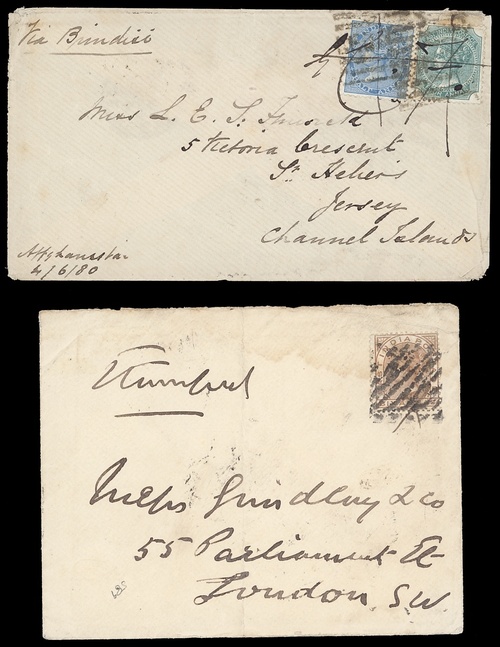 Via Brindisi
Miss L. E. S.
5 Victoria Crescent
St Heliers
Jersey
Channel Islands
Affghanistan
4/6/80
INDIA
Messrs Grindlay & Co
55 Parliament St
London, SW.